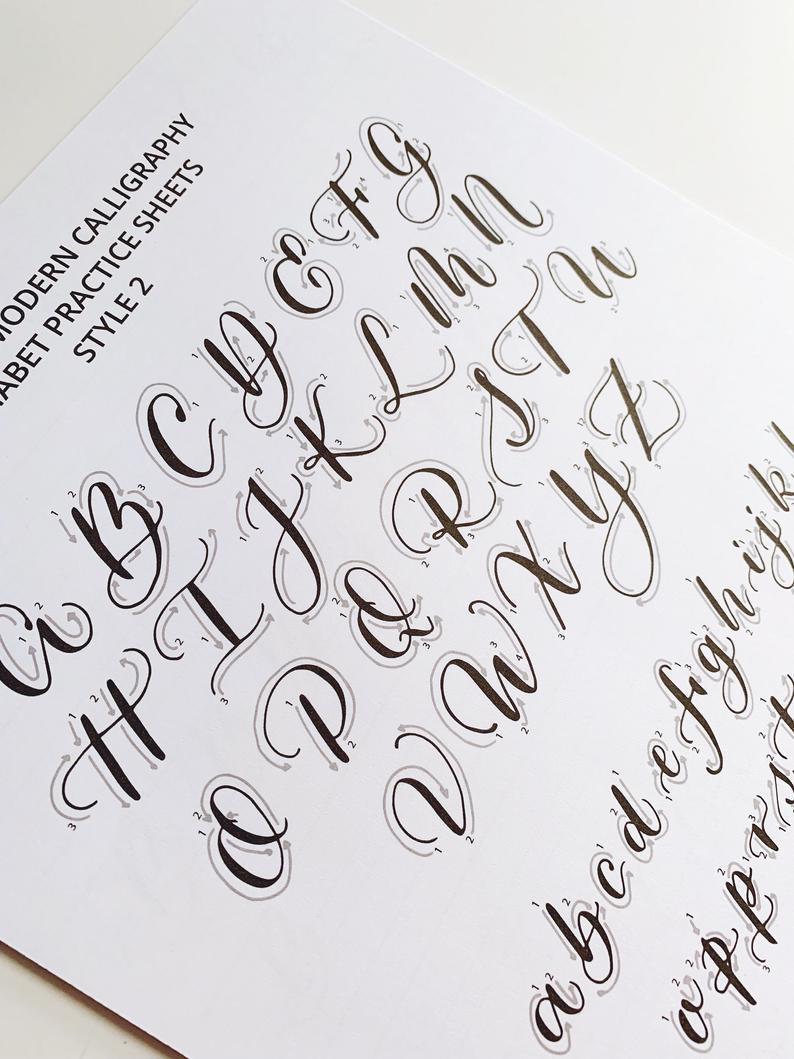 MODERN CALLIGRAPHY
ABET PRACTICE SHEETS
STYLE 2
A B C D E F G
H I J K L M N
O P Q R S T U
V W X Y Z
a b c d e f g h i j k l
o p p r s t